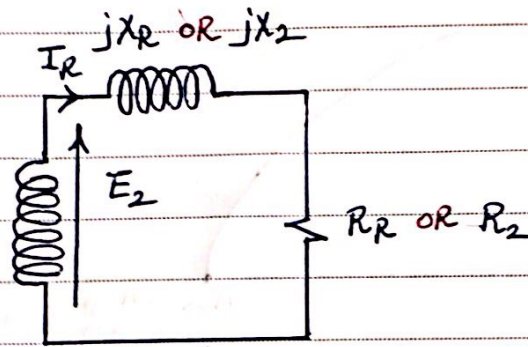 jXR OR jX2
IR
E2
RR OR R2